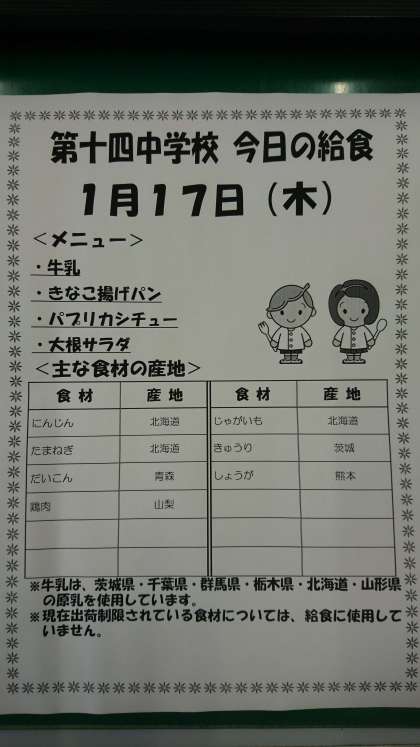 第十四中学校 今日の給食
1月17日（木）
＜メニュー＞
・牛乳
・きなこ揚げパン
・パプリカシチュー
・大根サラダ
＜主な食材の産地＞
食材 産地 食材 産地
にんじん 北海道 じゃがいも 北海道
たまねぎ 北海道 きゅうり 茨城
だいこん 青森 しょうが 熊本
鶏肉 山梨
※牛乳は、茨城県・千葉県・群馬県・栃木県・北海道・山形県
の原乳を使用しています。
※現在出荷制限されている食材については、給食に使用して
いません。